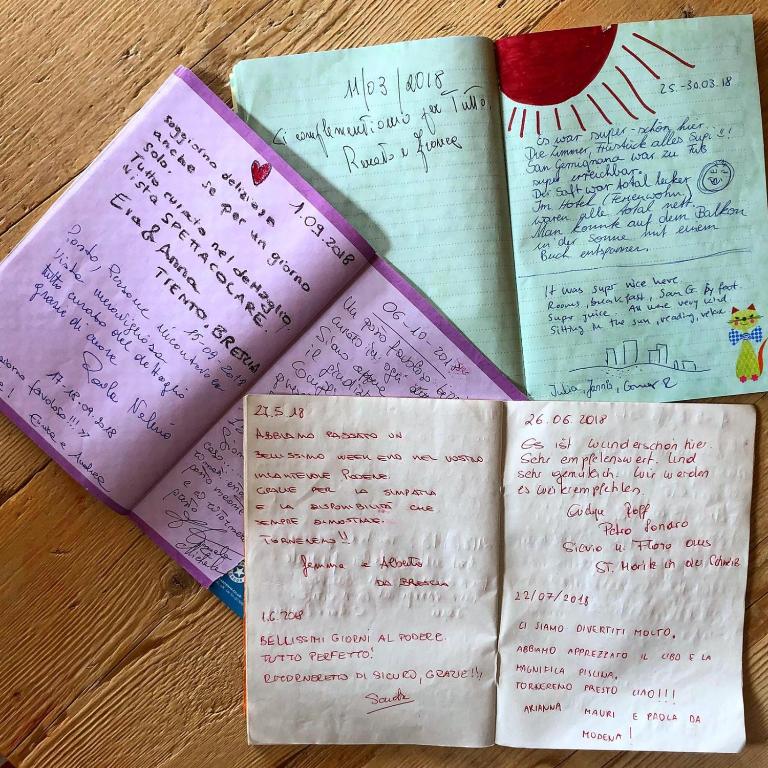 soggiorno delizioso
anche se per un giorno
solo.
Tutto curato nel dettaglio,
vista SPETTACOLARE.
Eva & Anna
TIENTO, BRESCIA
1.09.2018
15-09-2018
vista meravigliosa
tutto curato nel dettaglio
grazie di cuore
Paola
17-18.09.2018
favoloso!!!
Enrica e Andrea
06-10-201
Un posto favoloso
curato in ogni
11/03/2018
Ci complimentiamo per Tutto.
Renato e Franca
25.-30.03.18
Es war super-schön hier.
Die Zimmer, Früstück alles Supi!!!
San Gemignana war zu Fuß
super erreichbar.
Der Saft war total lecker
Im Hotel (Ferienwohn)
waren alle total nett.
Man konnte auf dem Balkon
in der Sonne mit einem
Buch entspannen.
It was super nice here.
Rooms, breakfast, San G. by foot.
Super juice. All were very kind
Sitting in the sun, reading, relax
Julia, Jannis,
27.5.18
ABBIAMO PASSATO UN
BELLISSIMO WEEK END NEL VOSTRO
INCANTEVOLE PODERE.
GRAZIE PER LA SIMPATIA
E LA DISPONIBILITÀ CHE
SEMPRE DIMOSTRATE.
TORNEREMO!!
Jemma e Alberto
DA BRESCIA
1.6.2018
BELLISSIMI GIORNI AL PODERE.
TUTTO PERFETTO!
RITORNERETO DI SICURO, GRAZIE!!!
Sandra
26.06.2018
Es ist wunderschön hier.
Sehr empfelenswert. Und
sehr gemütlich. Wir werden
es weiterempfehlen.
Petra
Silvio u. Flora aus
ST. Moritz in der Schweiz
22/07/2018
CI SIAMO DIVERTITI MOLTO,
ABBIAMO APPREZZATO IL CIBO E LA
MAGNIFICA PISCINA.
TORNEREMO PRESTO CIAO!!!
ARIANNA MAURI E PAOLA DA
MODENA!